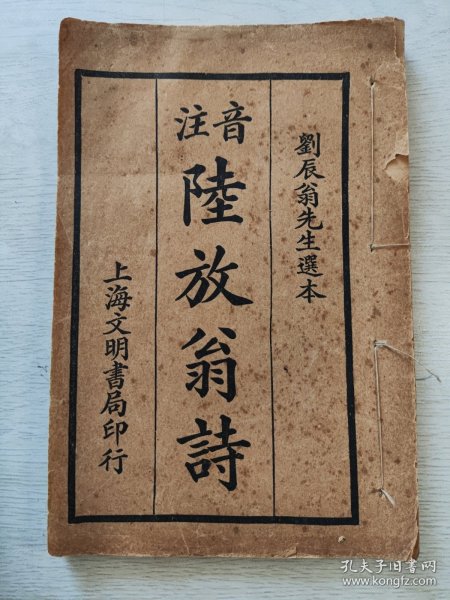 劉辰翁先生選本
音注
陸放翁詩
上海文明書局印行
孔夫子旧书网
www.kongfz.com